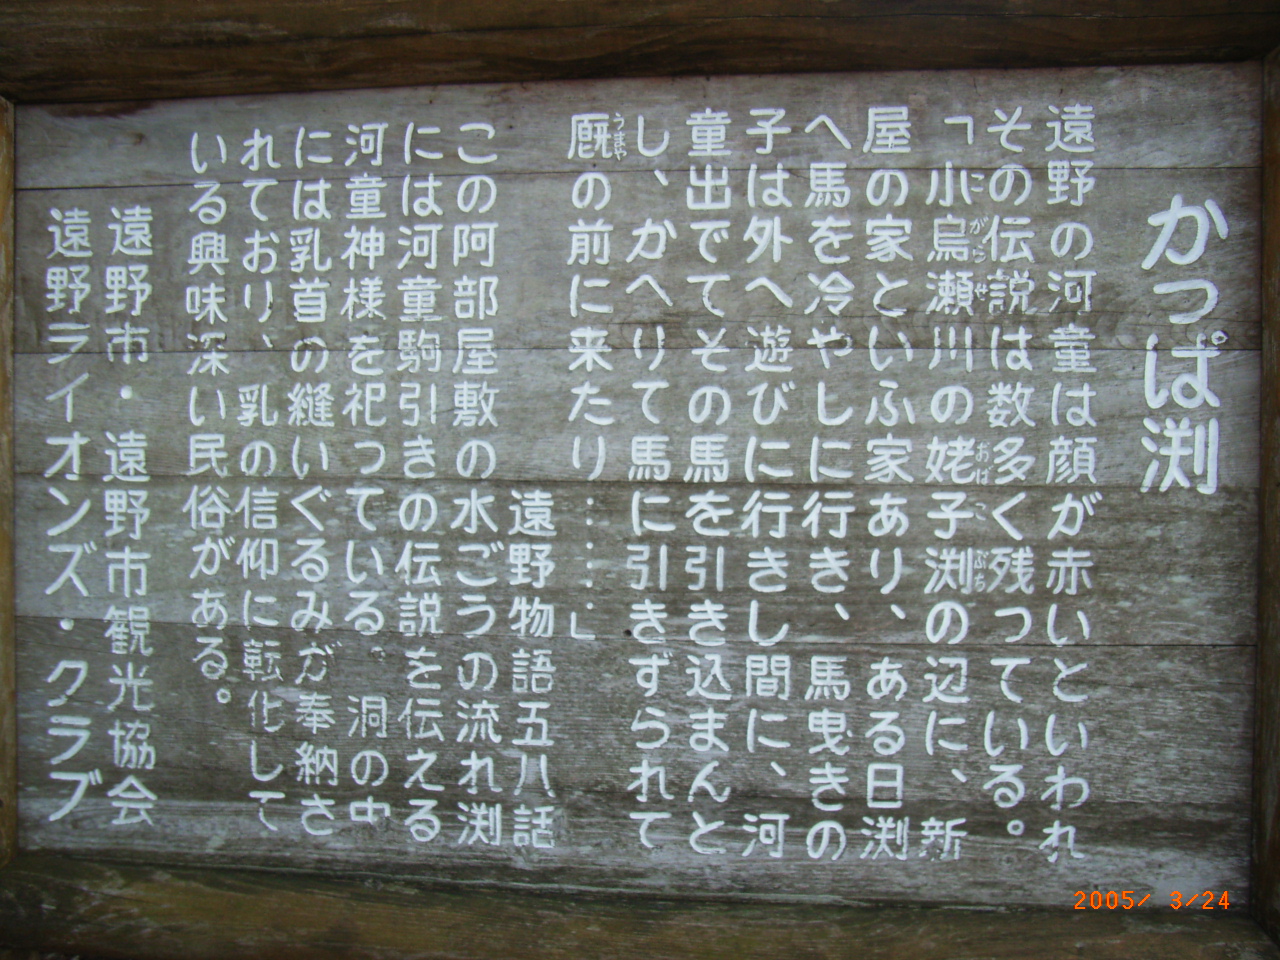 かっぱ渕
遠野の河童は顔が赤いといわれ
その伝説は数多く残っている。
「小烏瀬川の姥子渕の辺に、新
屋の家といふ家あり、ある日渕
へ馬を冷やしに行き、馬曳きの
子は外へ遊びに行きし間に、河
童出でてその馬を引き込まんと
し、かへりて馬に引きずられて
厩の前に来たり……」
遠野物語五八話
この阿部屋敷の水ごうの流れ渕
には河童駒引きの伝説を伝える
河童神様を祀っている。洞の中
には乳首の縫いぐるみが奉納さ
れており、乳の信仰に転化して
いる興味深い民俗がある。
遠野市・遠野市観光協会
遠野ライオンズ・クラブ
こ がら せ
おば こ ぶち
うまや
2005/ 3/24